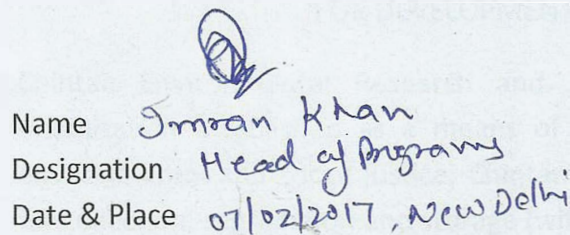 Name Imran Khan
Designation Head of Programs
Date & Place 07/02/2017, New Delhi